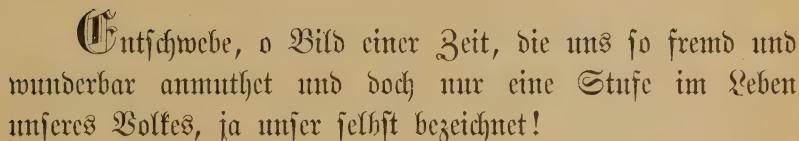 Entſchwebe, o Bild einer Zeit, die uns ſo fremd und
wunderbar anmuthet und doch nur eine Stufe im Leben
unſeres Volkes, ja unſer ſelbſt bezeichnet!